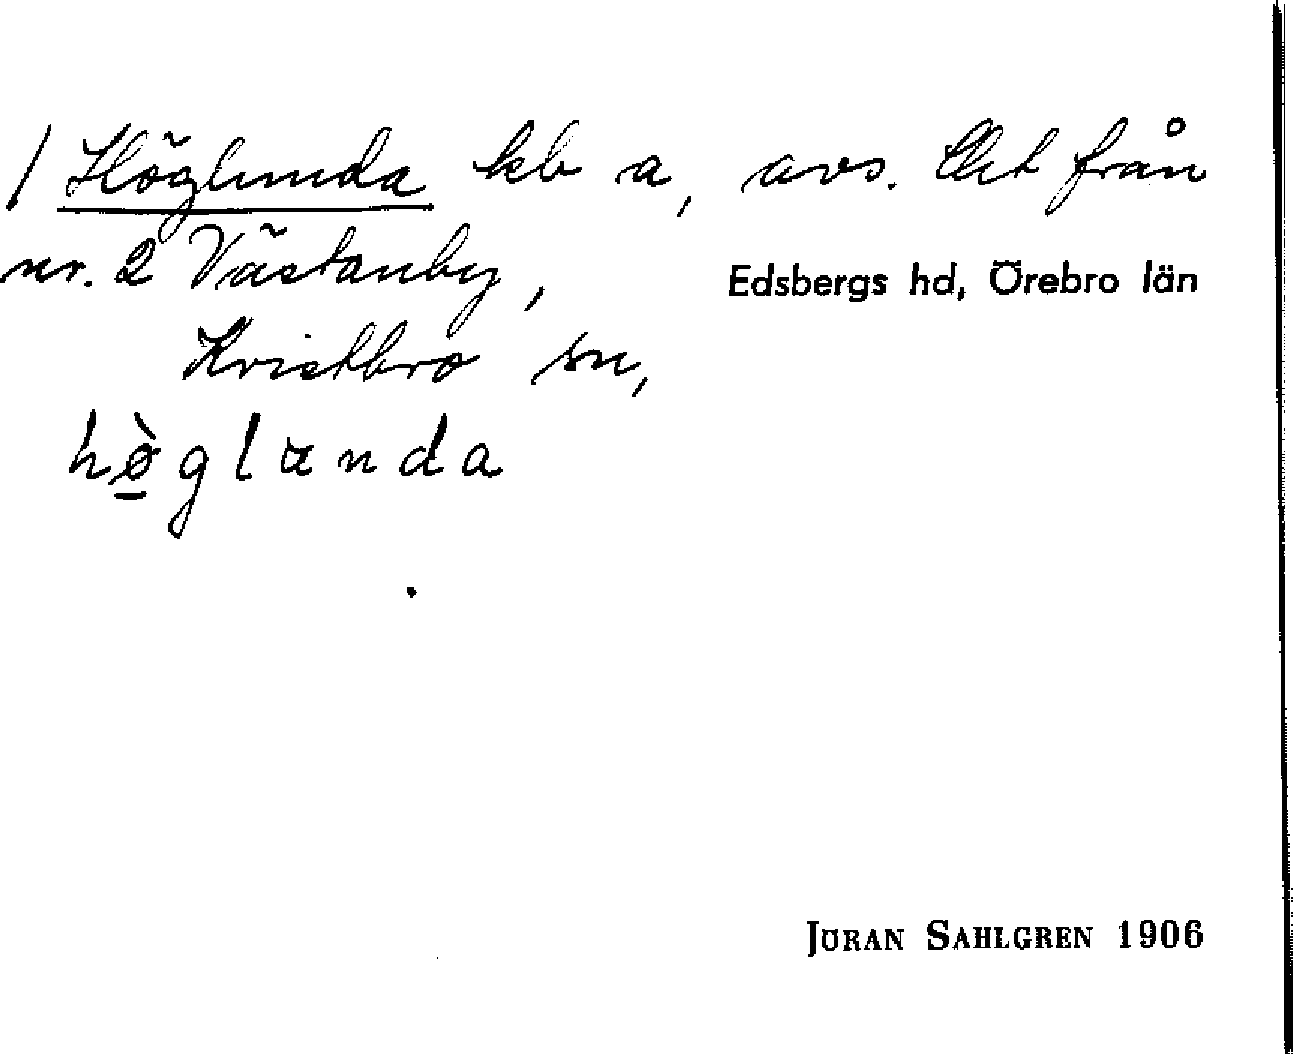 / Höglunda kb a, avs. lht från
nr. 2 Västanby,
Edsbergs hd, Örebro län
Kvistbro sn,
hø̀glanda
JORAN SAHLGREN 1906